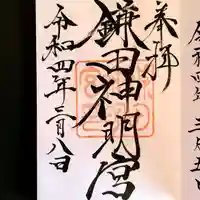 奉拝
鎌田神明宮
令和四年三月八日